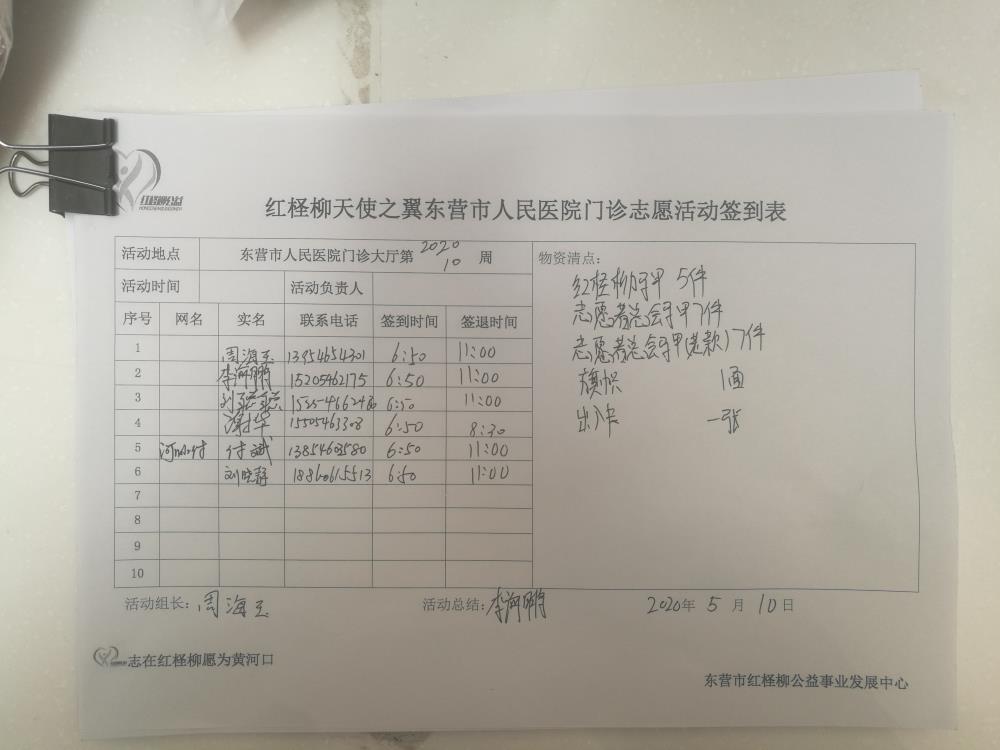 红柽柳公益
红柽柳天使之翼东营市人民医院门诊志愿活动签到表
活动地点 东营市人民医院门诊大厅第 2020 10 周
物资清点:
活动时间 活动负责人
红柽柳马甲 5件
志愿者总会马甲7件
志愿者总会马甲(老款)7件
旗帜 1面
出入卡 一张
序号 网名 实名 联系电话 签到时间 签退时间
1 周海玉 13954654301 6:50 11:00
2 李海鹏 15205462175 6:50 11:00
3 6:50 11:00
4 15505463308 6:50 8:30
5 付斌 13854603580 6:50 11:00
6 刘晓静 18860615513 6:50 11:00
7
8
9
10
活动组长: 周海玉 活动总结: 李海鹏 2020年 5 月 10日
志在红柽柳愿为黄河口
东营市红柽柳公益事业发展中心